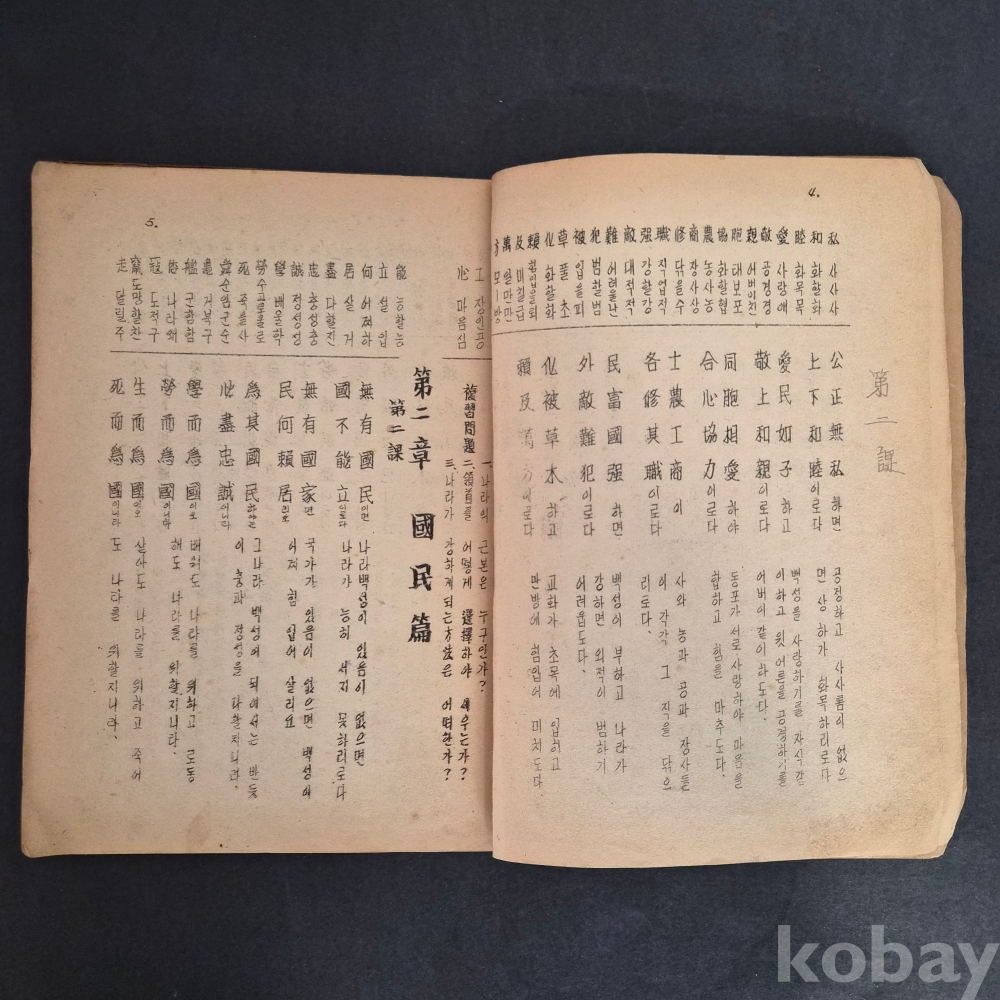 4.
私 사사사
和 화할화
睦 화목목
愛 사랑애
敬 공경경
親 어버이친
胞 태보포
協 화할협
農 농사농
商 장사상
修 닦을수
職 직업직
强 강할강
敵 대적적
難 어려울난
犯 범할범
被 입을피
草 풀 초
化 화할화
賴 힘입을뢰
及 미칠급
萬 일만만
方 모ㅣ방
第二課
公正無私 하면
上下和睦 이로다
愛民如子 하고
敬上和親 이로다
同胞相愛 하야
合心協力 이로다
士農工商 이
各修其職 이로다
民富國强 하면
外敵難犯 이로다
化被草木 하고
賴及萬方 이로다
공정하고 사사롬이 없으
면 상하가 화목하리로다
백성을 사랑하기를 자식같
이하고 윗어른을 공경하기를
어버이 같이하도다.
동포가 서로 사랑하야 마음을
합하고 힘을 마추도다.
사와 농과 공과 장사들
이 각각 그 직을 닦으
리로다.
백성이 부하고 나라가
강하면 외적이 범하기
어려웁도다.
교화가 초목에 입히고
만방에 힘입어 미치도다.
5.
工 장인공
心 마음심
複習問題
一. 나라의 근본은 누구인가?
二. 領首를 어떻게 選擇하야 세우는가?
三. 나라가 강하게되는 方法은 어떠한가?
第二章 國民篇
第二課
能 능할능
立 설 립
何 어찌하
居 살 거
盡 다할진
忠 충성충
誠 정성성
學 배울학
勞 수고로울로
死 죽을사
舜 순임군순
龜 거북구
艦 군함함
唐 나라당
寇 도적구
竄 도망할찬
走 달릴주
無有國民 이면
國不能立 이로다
無有國家 면
民何賴居 리요
爲其國民 하야는
心盡忠誠 이니라
學而爲國 이요
勞而爲國 이니라
生而爲國 이요
死而爲國 이니라
나라백성이 있음이 없으면
나라가 능히 서지 못하리로다
국가가 있음이 없으면 백성이
어찌 힘 입어 살리요
그나라 백성이 되여서는 반듯
이 충과 정성을 다할지니라.
배워도 나라를 위하고 로동
해도 나라를 위할지니라.
살아도 나라를 위하고 죽어
도 나라를 위할지니라.
kobay